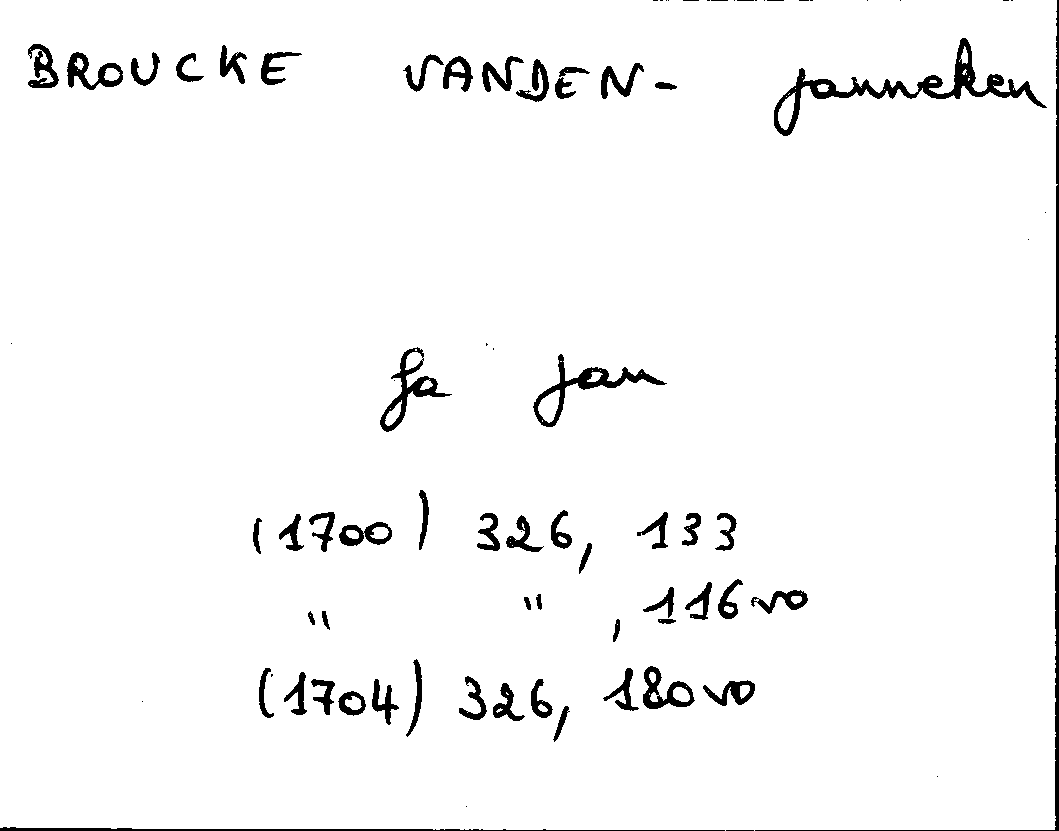 BROUCKE VANDEN- Janneken
fa Jan
(1700) 326, 133
" " , 116vo
(1704) 326, 180vo